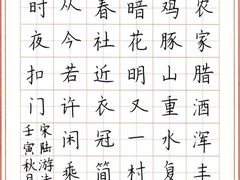 农家腊酒浑丰
鸡豚山重水复
暗花明又一村
春社近衣冠简
从今若许闲乘
时夜扣门
宋陆游
壬寅秋月